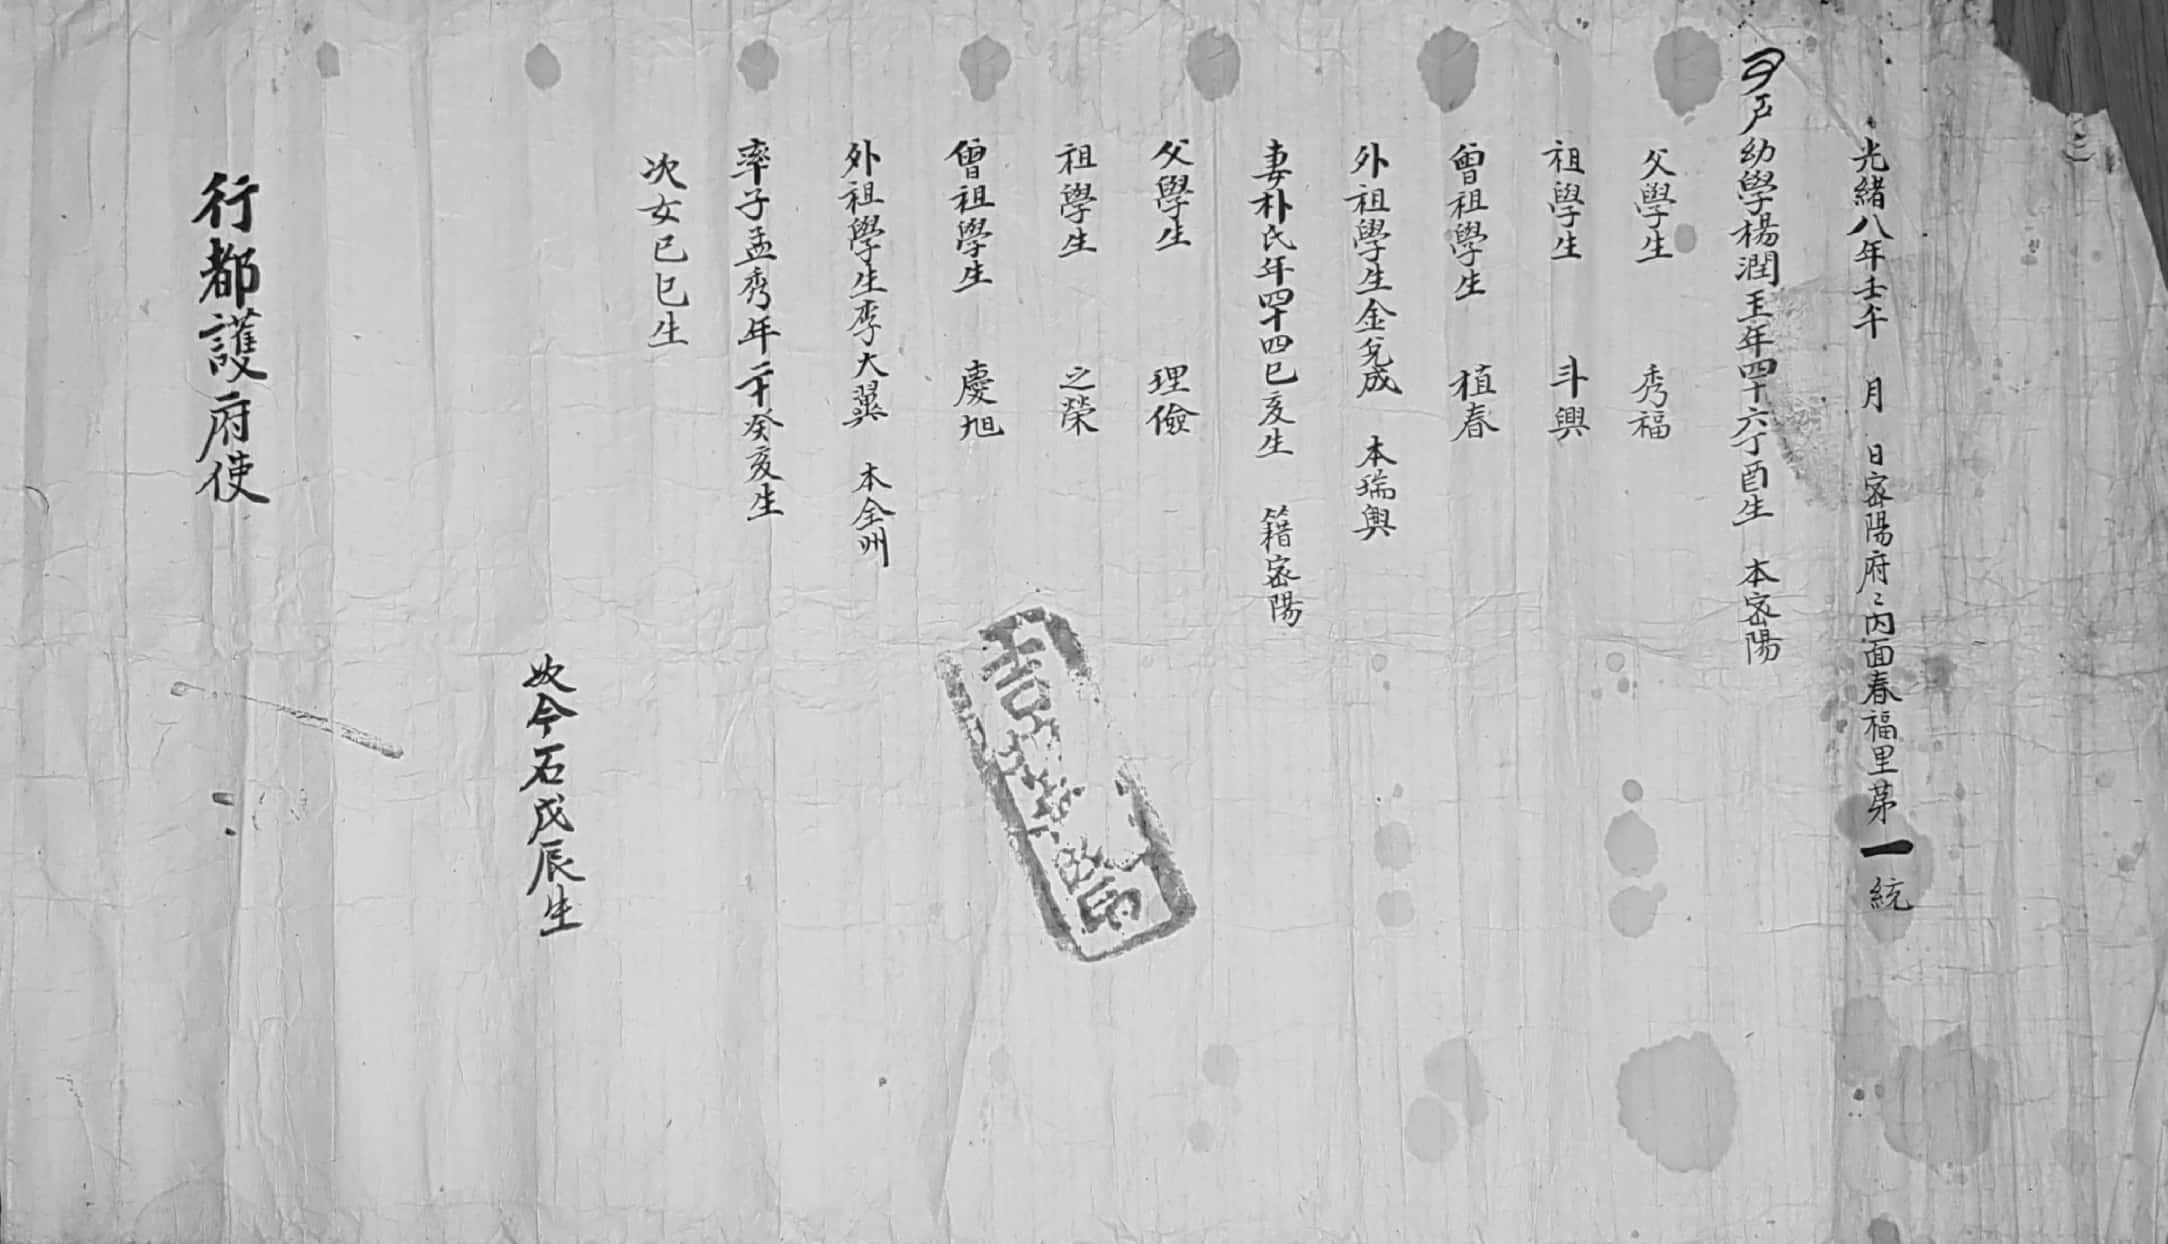 光緒八年壬午 月 日密陽府〻內面春福里苐一統
戶幼學楊潤王年四十六丁酉生 本密陽
父學生 秀福
祖學生 斗興
曾祖學生 植春
外祖學生金兌成 本瑞興
妻朴氏年四十四己亥生 籍密陽
父學生 理儉
祖學生 之榮
曾祖學生 慶旭
外祖學生李大翼 本全州
率子孟秀年二十癸亥生
次女己巳生
奴今石戊辰生
行都護府使